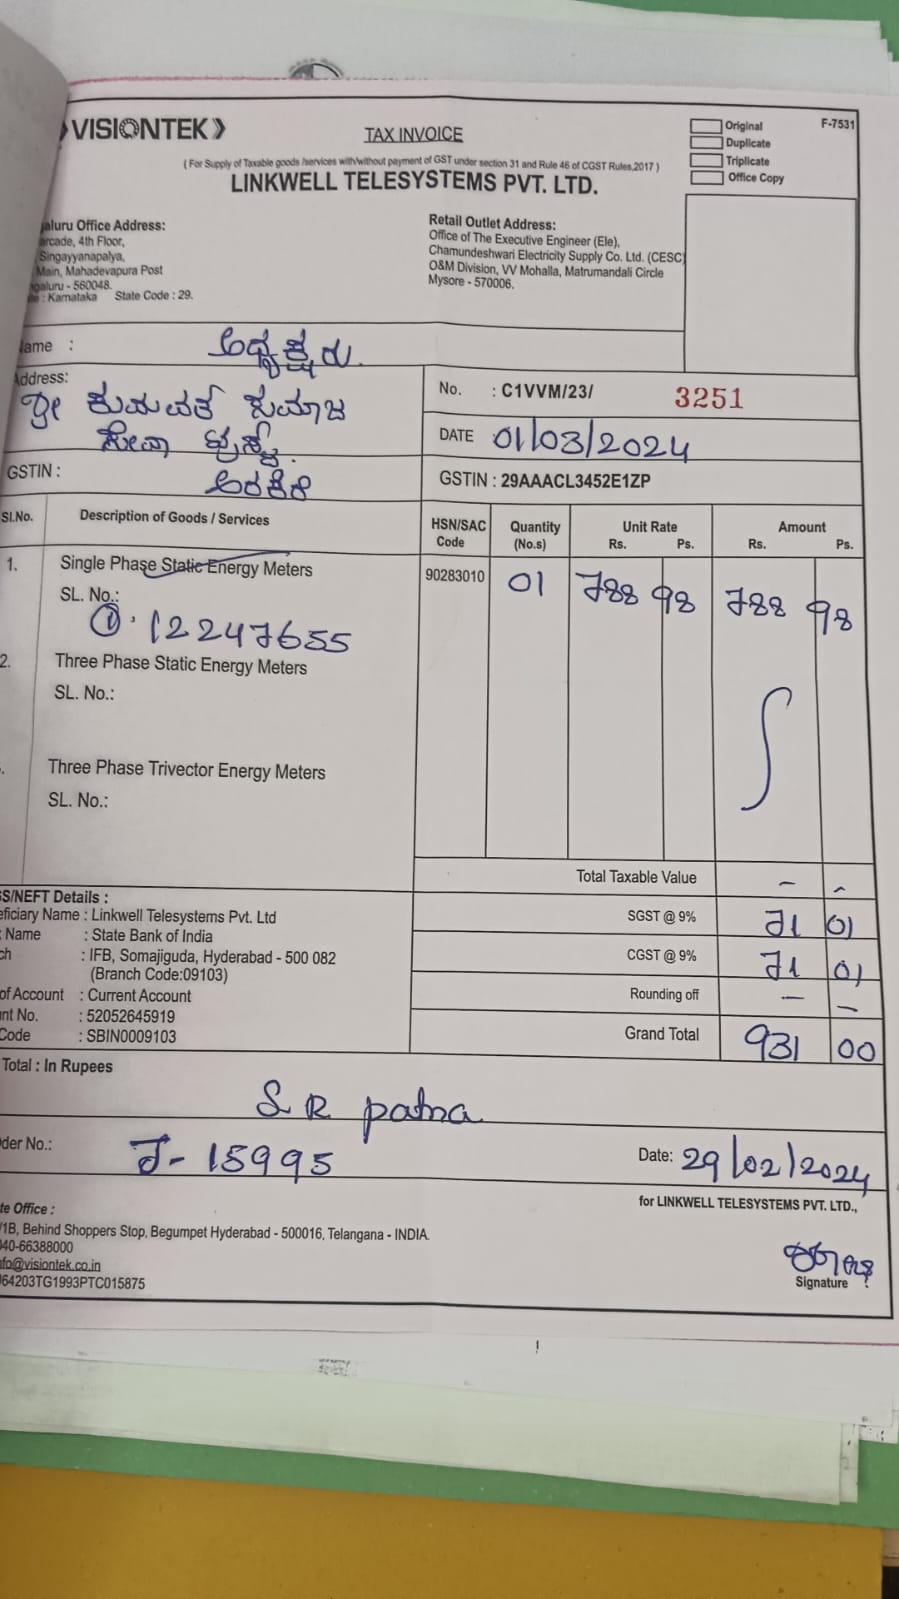 VISIONTEK
TAX INVOICE
Original
Duplicate
Triplicate
Office Copy
F-7531
( For Supply of Taxable goods /services with/without payment of GST under section 31 and Rule 46 of CGST Rules,2017 )
LINKWELL TELESYSTEMS PVT. LTD.
aluru Office Address:
arcade, 4th Floor,
Singayyanapalya,
Main, Mahadevapura Post
galuru - 560048.
: Karnataka State Code : 29.
Retail Outlet Address:
Office of The Executive Engineer (Ele),
Chamundeshwari Electricity Supply Co. Ltd. (CESC)
O&M Division, VV Mohalla, Matrumandali Circle
Mysore - 570006.
Name : ಅಧ್ಯಕ್ಷರು.
Address:
ಶ್ರೀ ಕುಮಪತ ಸಮಾಜ
ಸೇವಾ ಟ್ರಸ್ಟ್.
ಅರಕೆರೆ
No. : C1VVM/23/ 3251
DATE 01/03/2024
GSTIN :
GSTIN : 29AAACL3452E1ZP
Sl.No. Description of Goods / Services HSN/SAC Code Quantity (No.s) Unit Rate Rs. Ps. Amount Rs. Ps.
1. Single Phase Static Energy Meters 90283010 01 788 98 788 98
SL. No.:
①. 12247655
2. Three Phase Static Energy Meters
SL. No.:
Three Phase Trivector Energy Meters
SL. No.:
Total Taxable Value - -
SGST @ 9% 71 01
CGST @ 9% 71 01
Rounding off - -
Grand Total 931 00
S/NEFT Details :
eficiary Name : Linkwell Telesystems Pvt. Ltd
Name : State Bank of India
ch : IFB, Somajiguda, Hyderabad - 500 082
(Branch Code:09103)
of Account : Current Account
nt No. : 52052645919
Code : SBIN0009103
Total : In Rupees
S R patna
der No.: J- 15995
Date: 29/02/2024
for LINKWELL TELESYSTEMS PVT. LTD.,
te Office :
/1B, Behind Shoppers Stop, Begumpet Hyderabad - 500016, Telangana - INDIA.
040-66388000
nfo@visiontek.co.in
64203TG1993PTC015875
Signature